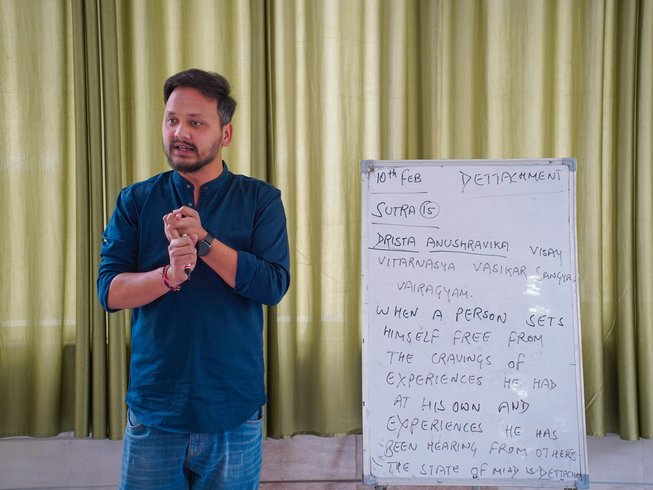 10th FEB DETTACHMENT
SUTRA 15
DRISTA ANUSHRAVIKA VISAY
VITARNASYA VASIKAR SANGYA
VAIRAGYAM.
WHEN A PERSON SETS
HIMSELF FREE FROM
THE CRAVINGS OF
EXPERIENCES HE HAD
AT HIS OWN AND
EXPERIENCES HE HAS
BEEN HEARING FROM OTHERS
THE STATE OF MIND IS DETTACHE